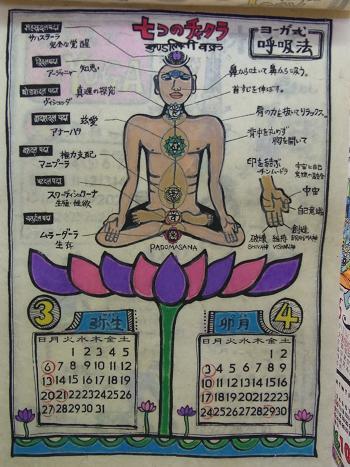 七つのチャクラ
ヨーガ式
呼吸法
サハスラーラ
完全な覚醒
アージュニャー 知恵
ヴィシュッダ 真理の探究
アナーハタ 慈愛
マニプーラ 権力支配
スワーディシュターナ
生殖・性欲
ムラーダーラ
生存
鼻から吐いて鼻から吸う。
首すじを伸ばす。
肩の力を抜いてリラックス。
背中を丸めず
胸を開いて
印を結ぶ
チンムードラ
宇宙と自己
宇宙
自己意識
創造
維持
破壊
PADOMASANA
3 弥生
日月火水木金土
1 2 3 4 5
6 7 8 9 10 11 12
13 14 15 16 17 18 19
20 21 22 23 24 25 26
27 28 29 30 31
卯月 4
日月火水木金土
1 2
3 4 5 6 7 8 9
10 11 12 13 14 15 16
17 18 19 20 21 22 23
24 25 26 27 28 29 30